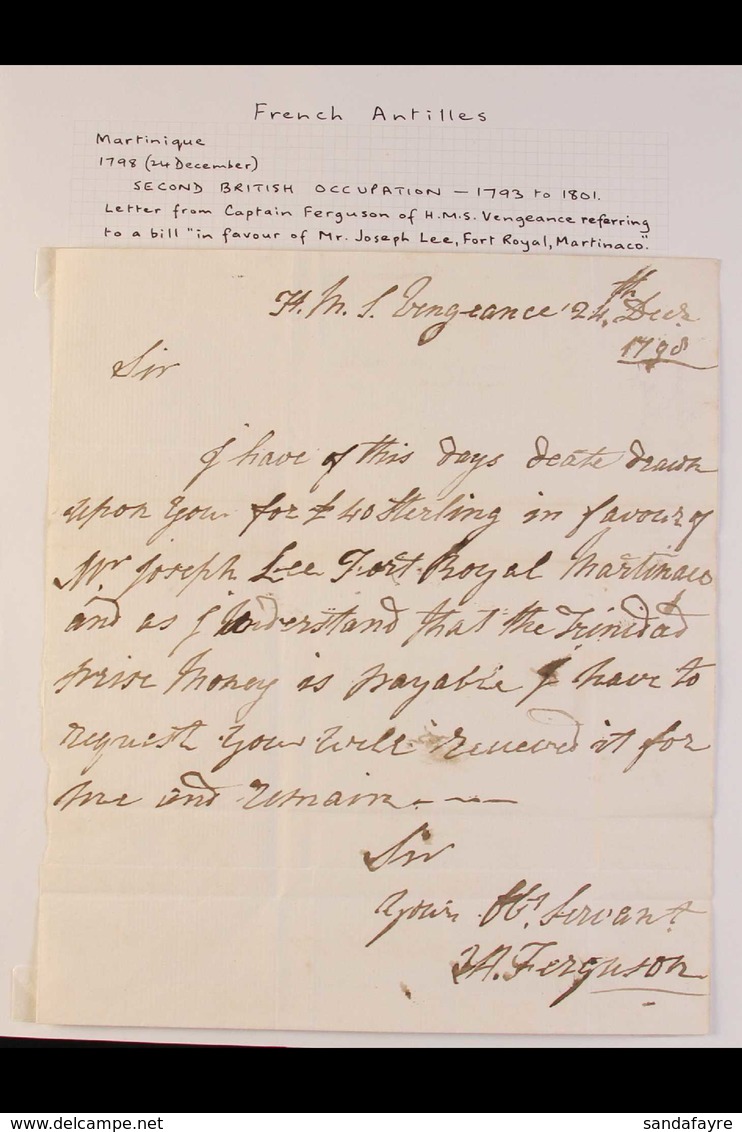 French Antilles
Martinique
1798 (24 December)
SECOND BRITISH OCCUPATION — 1793 to 1801.
Letter from Captain Ferguson of H.M.S. Vengeance referring
to a bill "in favour of Mr. Joseph Lee, Fort Royal, Martinaco".
H. M. S. Vengeance 24th Decr.
1798
Sir
I have of this days deate drawn
upon you for £40 Sterling in favour of
Mr Joseph Lee Fort Royal Martinaco
and as I understand that the Trinidad
prise money is payable I have to
request you will receved it for
me and remain
Sir
Your Obt. Servant
Ferguson
delcampe.net
sandafayre